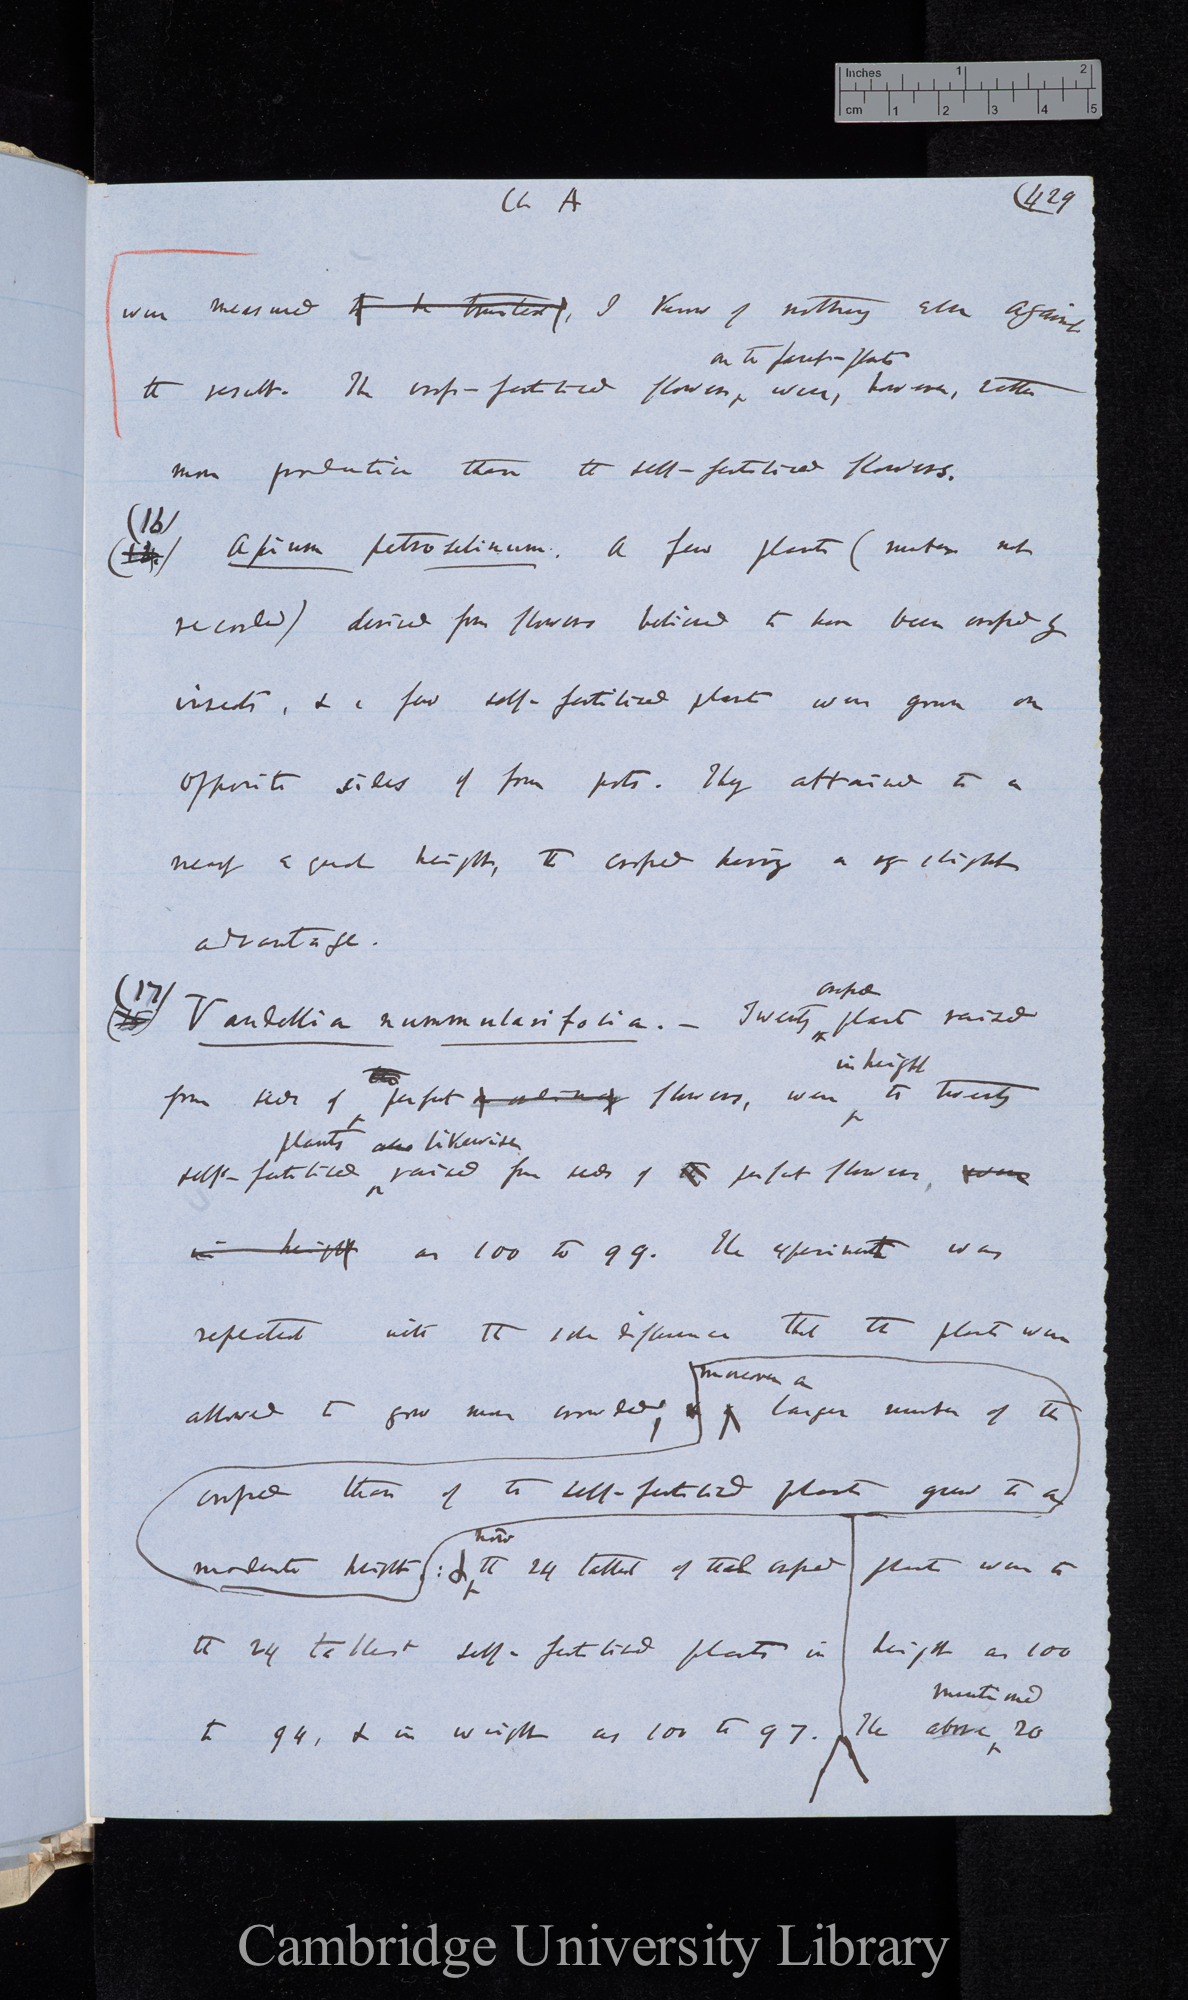 Inches 1 2
cm 1 2 3 4 5
Ch A
(429
were measured to be trusted, I know of nothing else against
on the parent-plants
the result. The cross-fertilised flowers were, however, rather
more productive than the self-fertilised flowers.
(16)
(14) Apium petroselinum. A few plants (number not
recorded) derived from flowers believed to have been crossed by
insects, & a few self-fertilised plants were grown on
opposite sides of four pots. They attained to a
nearly equal height, the crossed having a very slight
advantage.
(17)
crossed
(15) Vandellia nummularifolia. — Twenty plants raised
in height
the
from seeds of perfect flowers, were to twenty
plants also likewise
self-fertilised raised from seeds of the perfect flowers, were
in height as 100 to 99. The experiment was
repeated with the sole difference that the plants were
moreover a
allowed to grow more crowded, larger number of the
crossed than of the self-fertilised plants grew to a
now
moderate height: & the 24 tallest of the crossed plants were to
the 24 tallest self-fertilised plants in height as 100
mentioned
to 94, & in weight as 100 to 97. The above 20
Cambridge University Library